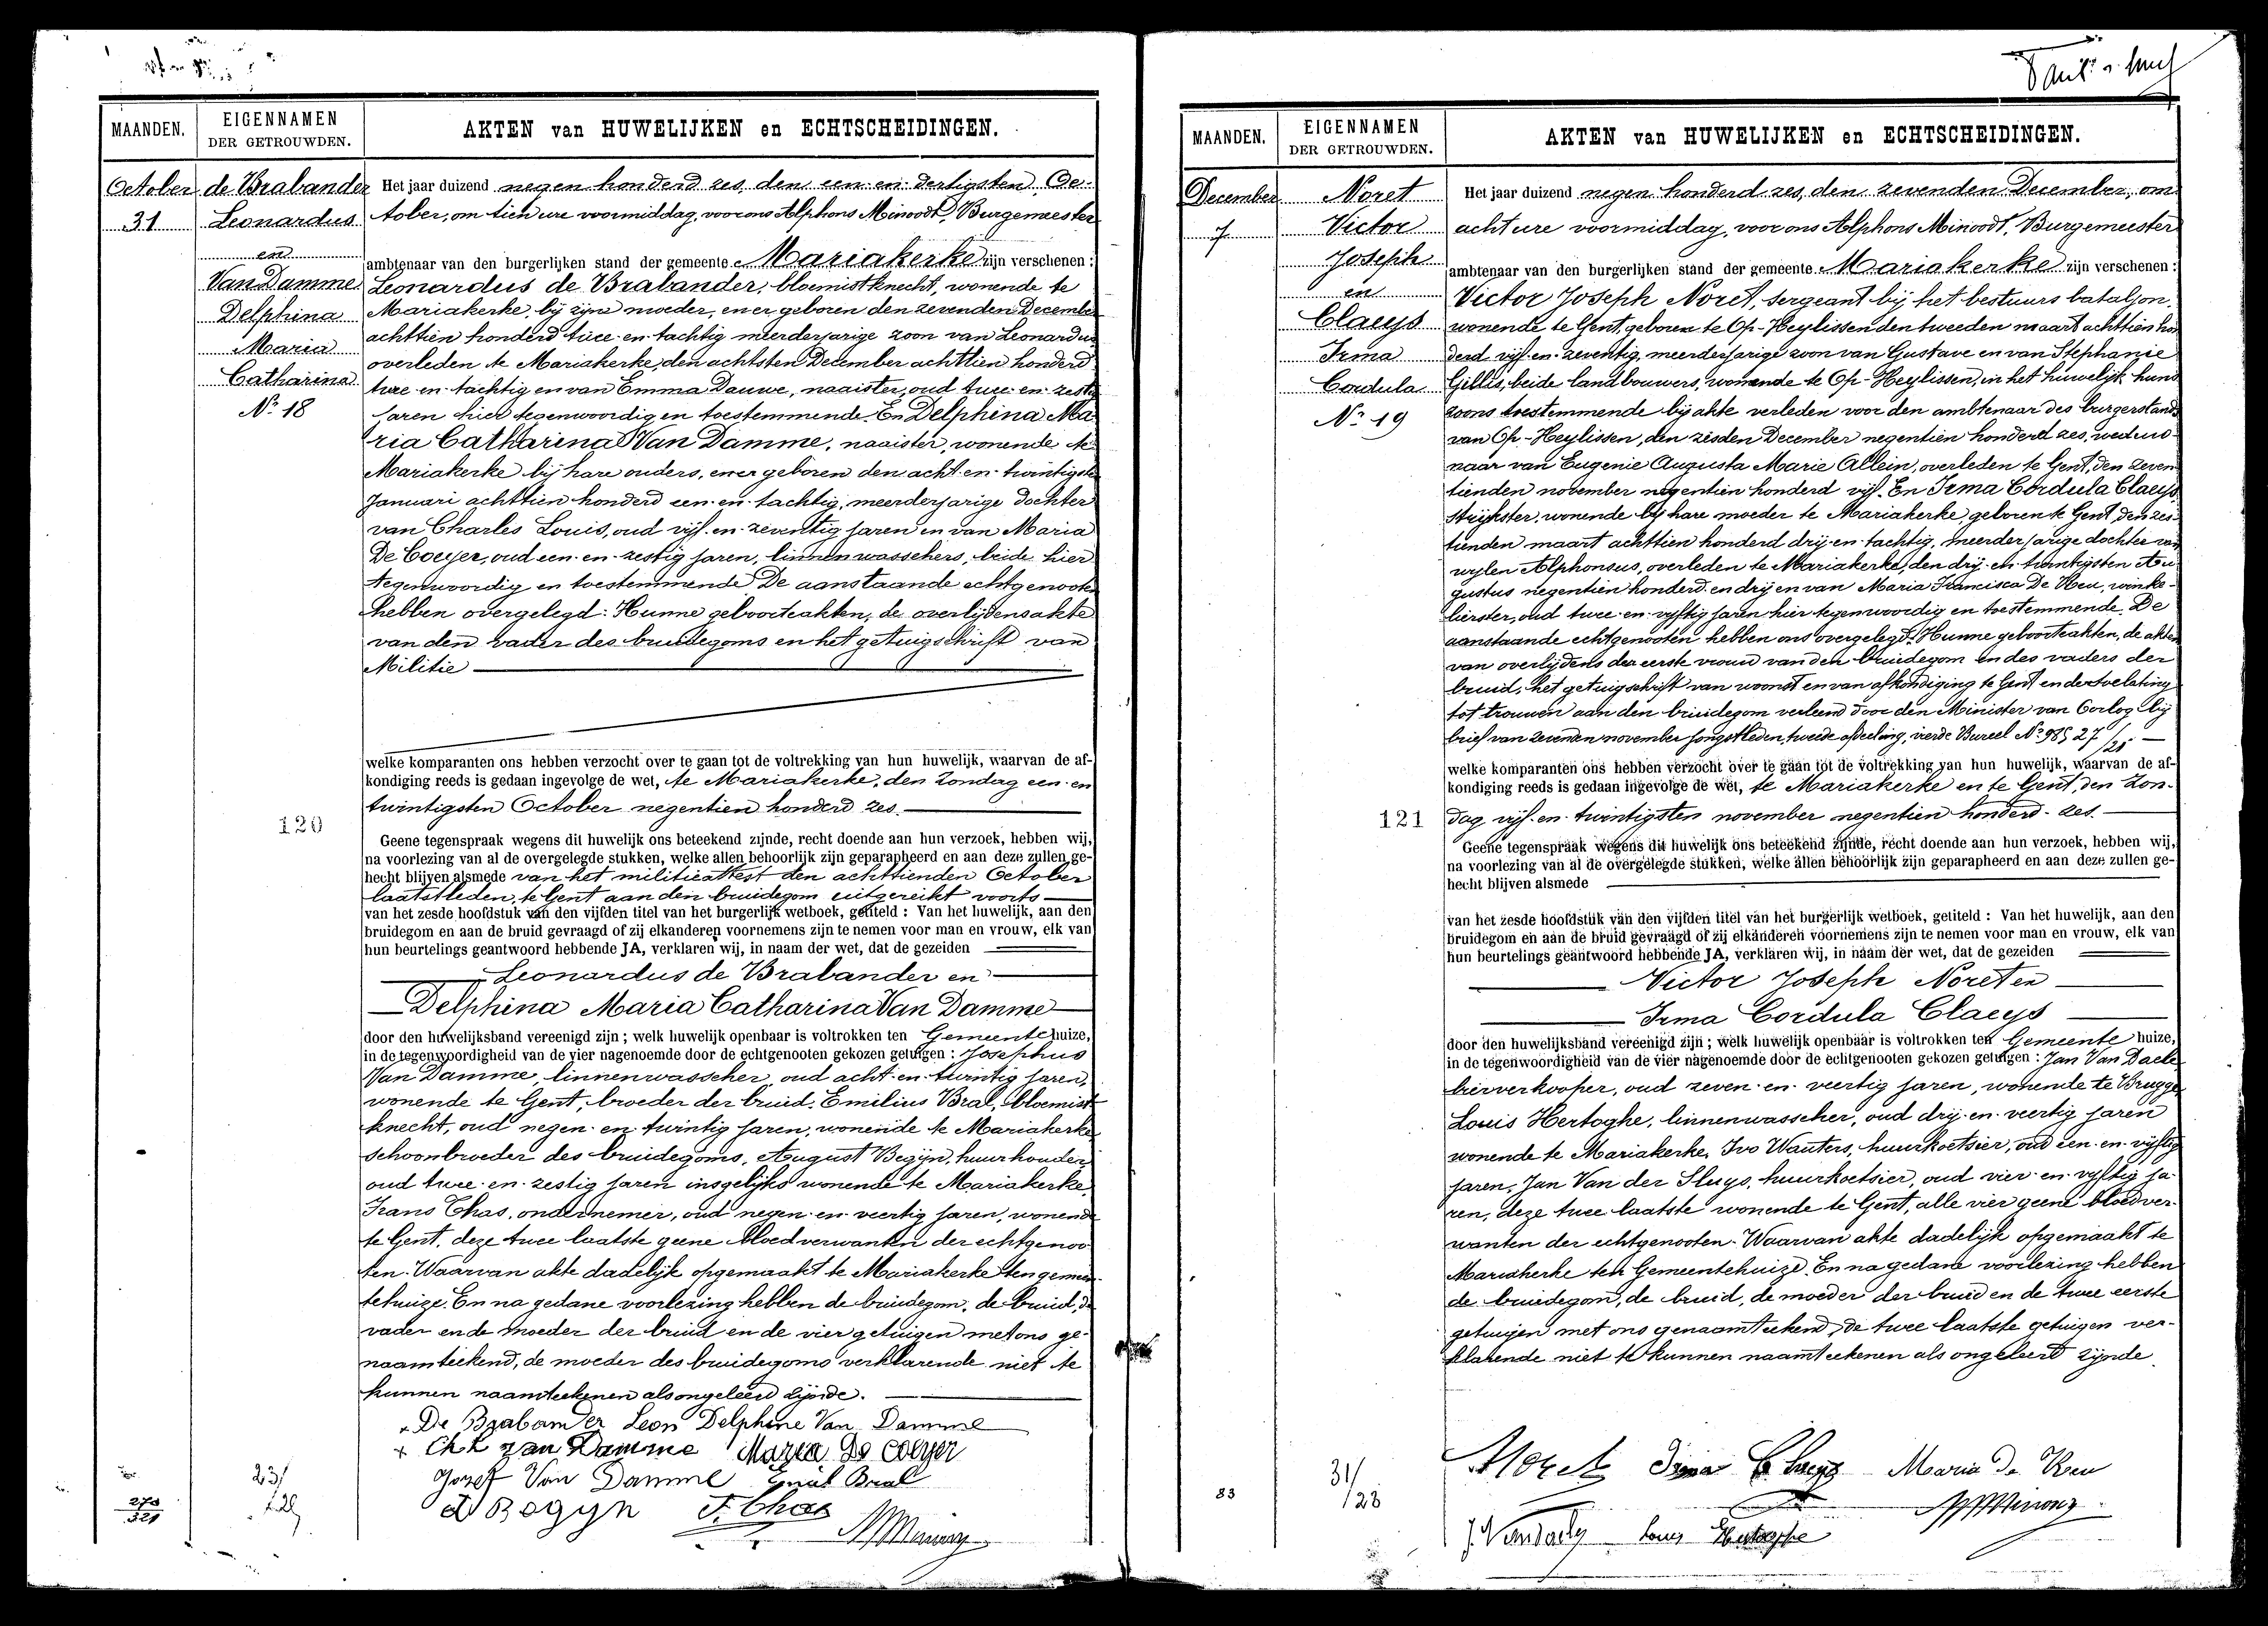 MAANDEN.
EIGENNAMEN
DER GETROUWDEN.
AKTEN van HUWELIJKEN en ECHTSCHEIDINGEN.
October
31
de Brabander
Leonardus
en
Van Damme
Delphina
Maria
Catharina
No 18
Het jaar duizend negen honderd zes, den een-en-dertigsten Oc-
tober, om tien ure voormiddag, voor ons Alphons Minoodt, Burgemeester
ambtenaar van den burgerlijken stand der gemeente Mariakerke zijn verschenen:
Leonardus de Brabander, bloemistknecht, wonende te
Mariakerke, bij zijne moeder, en er geboren den zevenden December
achttien honderd twee-en-tachtig meerderjarige zoon van Leonardus
overleden te Mariakerke, den achtsten December achttien honderd
twee-en-tachtig en van Emma Dauwe, naaister, oud twee-en-zestig
jaren hier tegenwoordig en toestemmende. En Delphina Ma-
ria Catharina Van Damme, naaister, wonende te
Mariakerke bij hare ouders, en er geboren den acht-en-twintigsten
Januari achttien honderd een-en-tachtig, meerderjarige dochter
van Charles Louis, oud vijf-en-zeventig jaren en van Maria
De Coeyer, oud een-en-zestig jaren, linnenwasschers, beide hier
tegenwoordig en toestemmende. De aanstaande echtgenooten
hebben overgelegd: Hunne geboorteakten, de overlijdensakte
van den vader des bruidegoms en het getuigschrift van
Militie
welke komparanten ons hebben verzocht over te gaan tot de voltrekking van hun huwelijk, waarvan de af-
kondiging reeds is gedaan ingevolge de wet, te Mariakerke, den Zondag een-en
twintigsten October negentien honderd zes.
120
Geene tegenspraak wegens dit huwelijk ons beteekend zijnde, recht doende aan hun verzoek, hebben wij,
na voorlezing van al de overgelegde stukken, welke allen behoorlijk zijn geparapheerd en aan deze zullen ge-
hecht blijven alsmede van het militieattest den achttienden October
laatstleden, te Gent aan den bruidegom uitgereikt voorts
van het zesde hoofdstuk van den vijfden titel van het burgerlijk wetboek, getiteld : Van het huwelijk, aan den
bruidegom en aan de bruid gevraagd of zij elkanderen voornemens zijn te nemen voor man en vrouw, elk van
hun beurtelings geantwoord hebbende JA, verklaren wij, in naam der wet, dat de gezeiden
Leonardus de Brabander en
Delphina Maria Catharina Van Damme
door den huwelijksband vereenigd zijn ; welk huwelijk openbaar is voltrokken ten Gemeentehuize,
in de tegenwoordigheid van de vier nagenoemde door de echtgenooten gekozen getuigen : Josephus
Van Damme, linnenwasscher, oud acht-en-twintig jaren,
wonende te Gent, broeder der bruid, Emilius Bral, bloemist-
knecht, oud negen-en-twintig jaren, wonende te Mariakerke
schoonbroeder des bruidegoms, August Begijn, huurhouder,
oud twee-en-zestig jaren insgelijks wonende te Mariakerke,
Frans Thas, ondernemer, oud negen-en-veertig jaren, wonende
te Gent, deze twee laatste geene bloedverwanten der echtgenoo-
ten. Waarvan akte dadelijk opgemaakt te Mariakerke ten gemeen-
tehuize. En na gedane voorlezing hebben de bruidegom, de bruid, de
vader en de moeder der bruid en de vier getuigen met ons ge-
naamteekend, de moeder des bruidegoms verklarende niet te
kunnen naamteekenen als ongeleerd zijnde.
De Brabander Leon Delphine Van Damme
Ch L van Damme Maria De Coeyer
Jozef Van Damme Emiel Bral
A Begyn F. Thas
23/
278
321
MAANDEN.
EIGENNAMEN
DER GETROUWDEN.
AKTEN van HUWELIJKEN en ECHTSCHEIDINGEN.
December
7
Noret
Victor
Joseph
en
Claeys
Irma
Cordula
No 19
Het jaar duizend negen honderd zes, den zevenden December, om
acht ure voormiddag, voor ons Alphons Minoodt, Burgemeester
ambtenaar van den burgerlijken stand der gemeente Mariakerke zijn verschenen:
Victor Joseph Noret, sergeant bij het bestuurs bataljon,
wonende te Gent, geboren te Op-Heylissen den tweeden maart achttien hon
derd vijf-en-zeventig, meerderjarige zoon van Gustave en van Stephanie
Gillis, beide landbouwers, wonende te Op-Heylissen, in het huwelijk huns
zoons toestemmende bij akte verleden voor den ambtenaar des burgerstands
van Op-Heylissen, den zesden December negentien honderd zes, weduw-
naar van Eugenie Augusta Marie Allein, overleden te Gent, den zeven-
tienden november negentien honderd vijf. En Irma Cordula Claeys,
strijkster, wonende bij hare moeder te Mariakerke, geboren te Gent, den zes-
tienden maart achttien honderd drij-en-tachtig, meerderjarige dochter van
wijlen Alphonsus, overleden te Mariakerke, den drij-en-twintigsten Au-
gustus negentien honderd en drij en van Maria Francisca De Keu, winke-
lierster, oud twee-en-vijftig jaren hier tegenwoordig en toestemmende. De
aanstaande echtgenooten hebben ons overgelegd: Hunne geboorteakten, de akten
van overlijdens der eerste vrouw van den bruidegom en des vaders der
bruid, het getuigschrift van woonst en van afkondiging te Gent en der toelating
tot trouwen aan den bruidegom verleend door den Minister van Oorlog bij
brief van zevenden november jongstleden, tweede afdeeling, vierde Bureel No 985 27/25
welke komparanten ons hebben verzocht over te gaan tot de voltrekking van hun huwelijk, waarvan de af-
kondiging reeds is gedaan ingevolge de wet, te Mariakerke en te Gent, den Zon-
dag vijf-en-twintigsten november negentien honderd-zes.
121
Geene tegenspraak wegens dit huwelijk ons beteekend zijnde, recht doende aan hun verzoek, hebben wij,
na voorlezing van al de overgelegde stukken, welke allen behoorlijk zijn geparapheerd en aan deze zullen ge-
hecht blijven alsmede
van het zesde hoofdstuk van den vijfden titel van het burgerlijk wetboek, getiteld : Van het huwelijk, aan den
bruidegom en aan de bruid gevraagd of zij elkanderen voornemens zijn te nemen voor man en vrouw, elk van
hun beurtelings geantwoord hebbende JA, verklaren wij, in naam der wet, dat de gezeiden
Victor Joseph Noret en
Irma Cordula Claeys
door den huwelijksband vereenigd zijn ; welk huwelijk openbaar is voltrokken ten Gemeente huize,
in de tegenwoordigheid van de vier nagenoemde door de echtgenooten gekozen getuigen : Jan Van Daele
bierverkooper, oud zeven-en-veertig jaren, wonende te Brugge,
Louis Hertoghe, linnenwasscher, oud drij-en-veertig jaren
wonende te Mariakerke, Ivo Wauters, huurkoetsier, oud een-en-vijftig
jaren, Jan Van der Sluys, huurkoetsier, oud vier-en-vijftig ja-
ren, deze twee laatste wonende te Gent, alle vier geene bloedver-
wanten der echtgenooten. Waarvan akte dadelijk opgemaakt te
Mariakerke ten Gemeentehuize. En na gedane voorlezing hebben
de bruidegom, de bruid, de moeder der bruid en de twee eerste
getuigen met ons genaamteekend, de twee laatste getuigen ver-
klarende niet te kunnen naamteekenen als ongeleerd zijnde.
Noret Irma Claeys Maria De Keu
J. Vandaele Louis Hertoghe
31/
/23
83